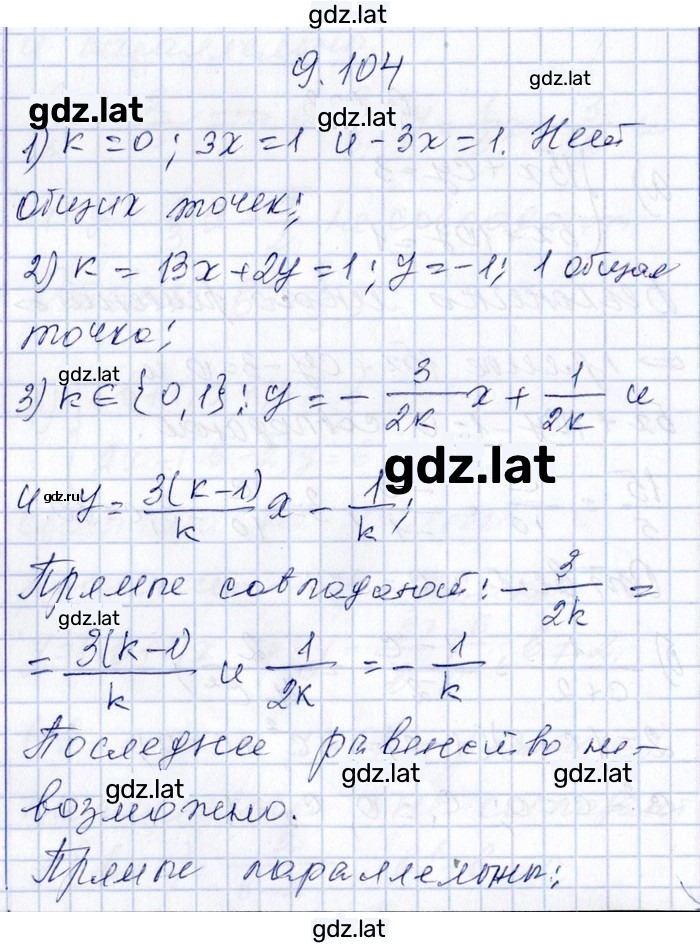 gdz.lat
9.104
gdz.lat
gdz.lat
gdz.lat
1) k = 0; 3x = 1 и -3x = 1. Нет
общих точек;
2) k = 13x + 2y = 1; y = -1; 1 общая
точка;
gdz.lat
3) k ∈ {0, 1}: y = - 3/2k x + 1/2k и
gdz.lat
и y = 3(k-1)/k x - 1/k;
gdz.ru
Прямые совпадают: - 3/2k =
gdz.lat
= 3(k-1)/k и 1/2k = - 1/k
Последнее равенство не-
gdz.lat
gdz.lat
gdz.lat
возможно.
Прямые параллельны:
gdz.lat